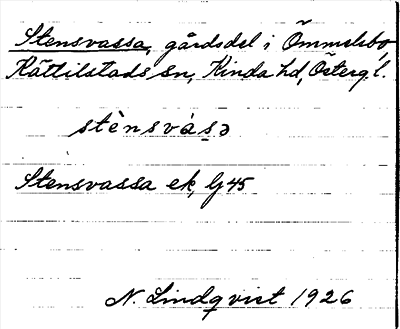 Stensvassa, gårdsdel i Ömmelsbo,
Kättilstads sn, Kinda hd, Österg.l.
stènsvásə
Stensvassa ek, G 45
N. Lindqvist 1926